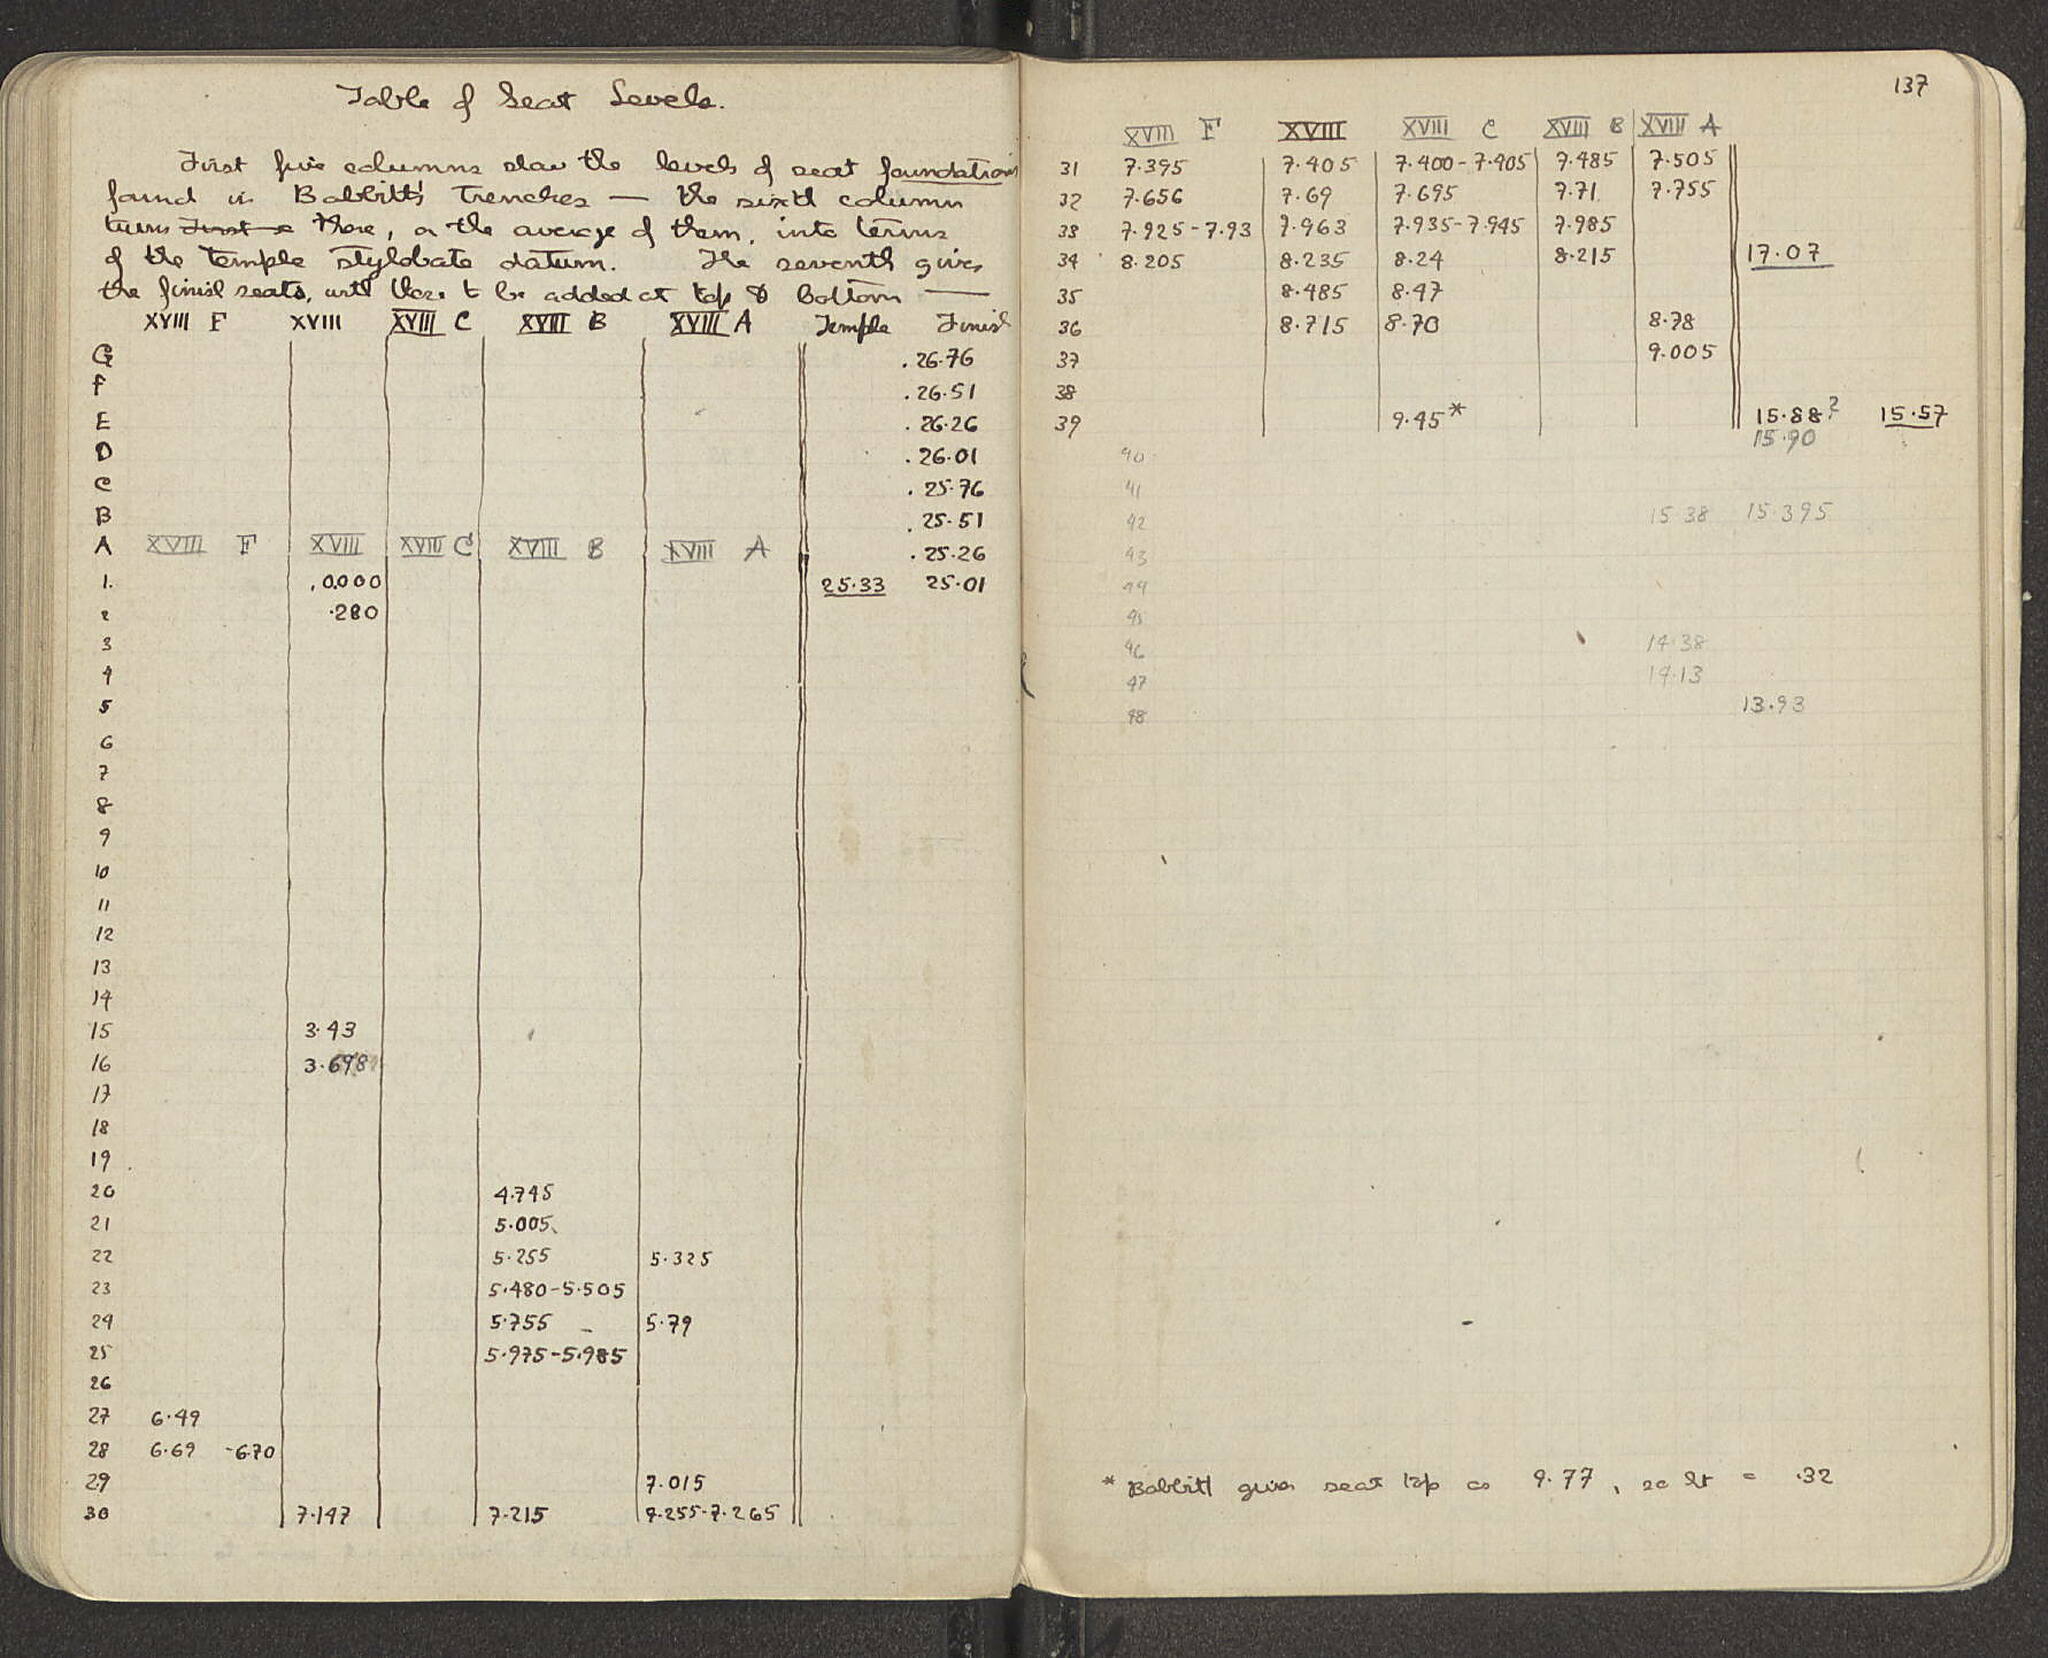 Table of Seat Levels.
First five columns show the levels of seat foundations
found in Babbitt's Trenches — the sixth column
turns these, or the average of them, into terms
of the temple stylobate datum. The seventh gives
the finisl seats, with those to be added at top & bottom —
XVIII F XVIII XVIII C XVIII B XVIII A Temple Finisl
G . 26.76
F . 26.51
E . 26.26
D . 26.01
C . 25.76
B . 25.51
A XVIII F XVIII XVIII C XVIII B XVIII A . 25.26
1. .0.000 25.33 25.01
2 .280
3
4
5
6
7
8
9
10
11
12
13
14
15 3.43
16 3.698
17
18
19
20 4.745
21 5.005
22 5.255 5.325
23 5.480-5.505
24 5.755 – 5.79
25 5.975-5.985
26
27 6.49
28 6.69 -6.70
29 7.015
30 7.147 7.215 7.255-7.265
137
XVIII F XVIII XVIII C XVIII B XVIII A
31 7.395 7.405 7.400-7.405 7.485 7.505
32 7.656 7.69 7.695 7.71 7.755
33 7.925-7.93 7.963 7.935-7.945 7.985
34 8.205 8.235 8.24 8.215 17.07
35 8.485 8.47
36 8.715 8.70 8.78
37 9.005
38
39 9.45* 15.88? 15.57
15.90
40
41
42 15.38 15.395
43
44
45
46 14.38
47 14.13
48 13.93
* Babbitt gives seat top as 9.77, so ht = .32